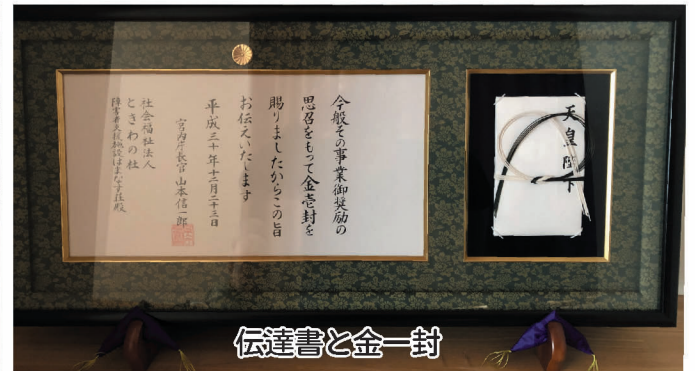 今般その事業御奨励の
思召をもって金壱封を
賜りましたからこの旨
お伝えいたします
平成三十年十二月二十三日
宮内庁長官山本信一郎
社会福祉法人
ときわの杜
障害者支援施設はまなす荘殿
天皇陛下
伝達書と金一封